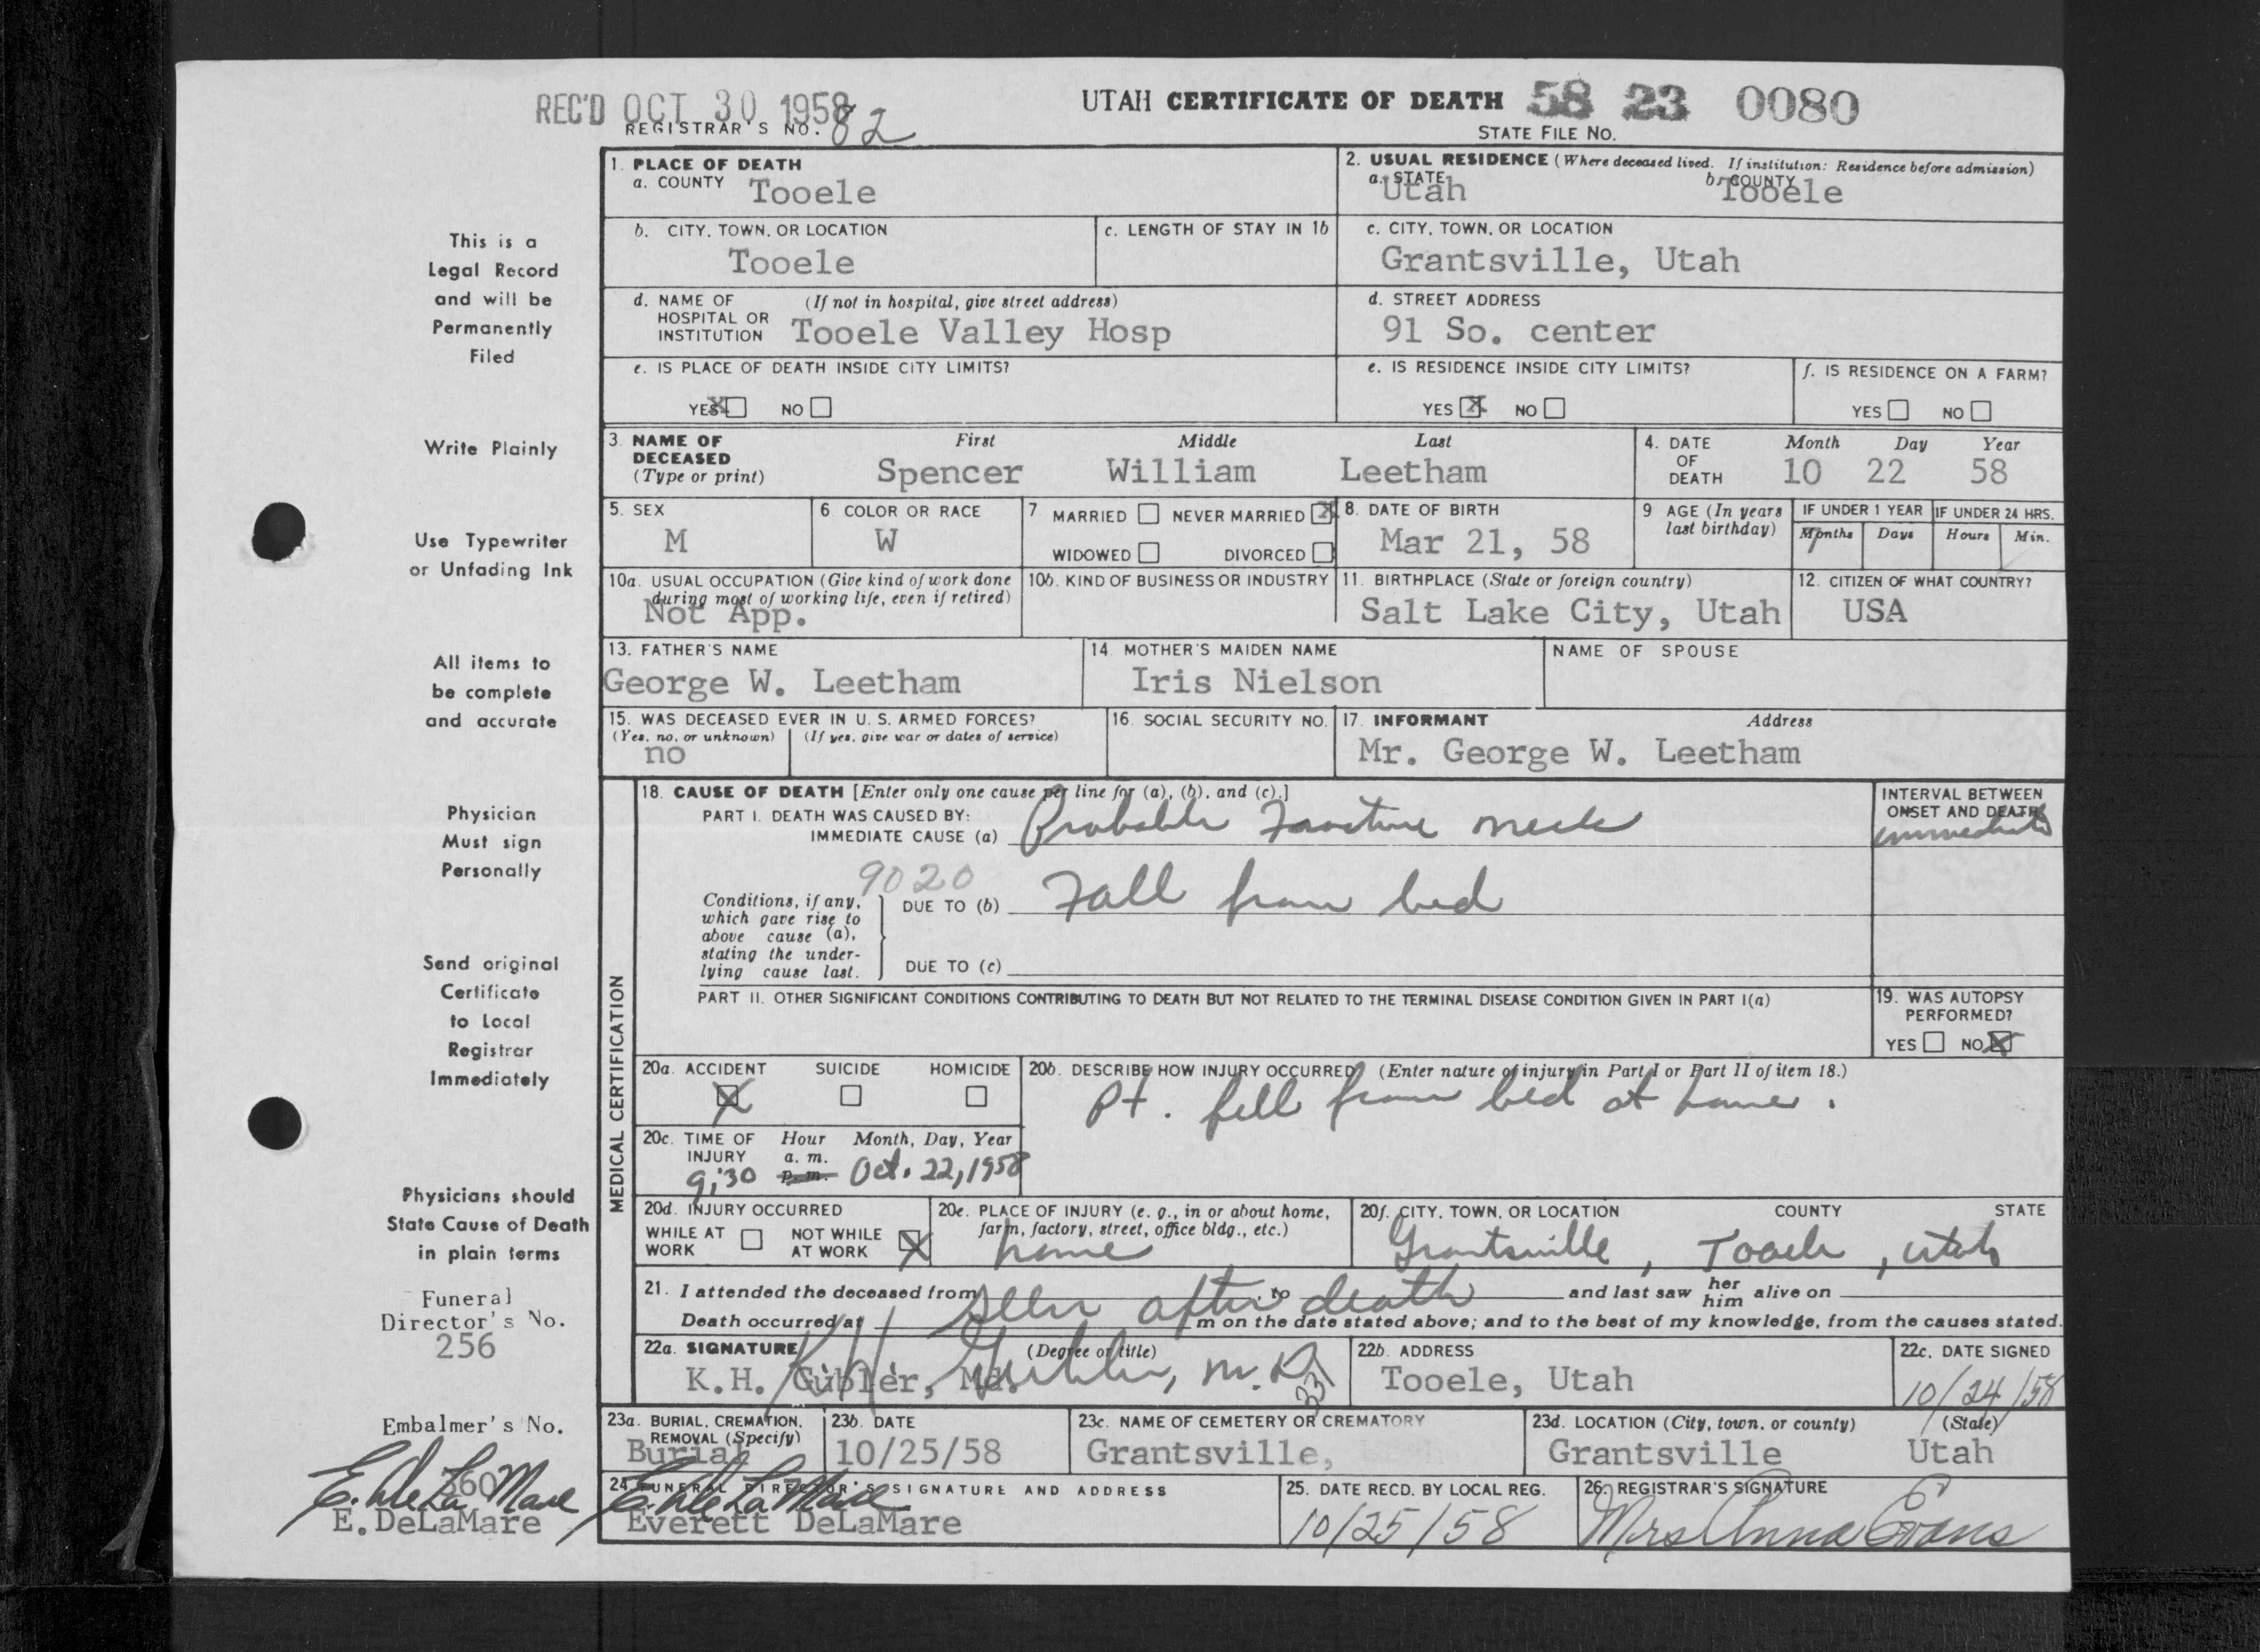 REC'D OCT 30 1958
REGISTRAR'S NO. 82
UTAH CERTIFICATE OF DEATH 58 23 0080
STATE FILE NO.
This is a
Legal Record
and will be
Permanently
Filed
Write Plainly
Use Typewriter
or Unfading Ink
All items to
be complete
and accurate
Physician
Must sign
Personally
Send original
Certificate
to Local
Registrar
Immediately
Physicians should
State Cause of Death
in plain terms
Funeral
Director's No.
256
Embalmer's No.
360
E. DeLaMare
E.DeLaMare
1. PLACE OF DEATH
a. COUNTY Tooele
2. USUAL RESIDENCE (Where deceased lived. If institution: Residence before admission)
a. STATE Utah b. COUNTY Tooele
b. CITY, TOWN, OR LOCATION
Tooele
c. LENGTH OF STAY IN 1b
c. CITY, TOWN, OR LOCATION
Grantsville, Utah
d. NAME OF HOSPITAL OR INSTITUTION (If not in hospital, give street address)
Tooele Valley Hosp
d. STREET ADDRESS
91 So. center
e. IS PLACE OF DEATH INSIDE CITY LIMITS?
YES X NO
e. IS RESIDENCE INSIDE CITY LIMITS?
YES X NO
f. IS RESIDENCE ON A FARM?
YES NO
3. NAME OF DECEASED (Type or print)
First Middle Last
Spencer William Leetham
4. DATE OF DEATH
Month Day Year
10 22 58
5. SEX
M
6. COLOR OR RACE
W
7. MARRIED NEVER MARRIED X
WIDOWED DIVORCED
8. DATE OF BIRTH
Mar 21, 58
9. AGE (In years last birthday)
IF UNDER 1 YEAR IF UNDER 24 HRS.
Months Days Hours Min.
7
10a. USUAL OCCUPATION (Give kind of work done during most of working life, even if retired)
Not App.
10b. KIND OF BUSINESS OR INDUSTRY
11. BIRTHPLACE (State or foreign country)
Salt Lake City, Utah
12. CITIZEN OF WHAT COUNTRY?
USA
13. FATHER'S NAME
George W. Leetham
14. MOTHER'S MAIDEN NAME
Iris Nielson
NAME OF SPOUSE
15. WAS DECEASED EVER IN U. S. ARMED FORCES?
(Yes, no, or unknown) (If yes, give war or dates of service)
no
16. SOCIAL SECURITY NO.
17. INFORMANT Address
Mr. George W. Leetham
MEDICAL CERTIFICATION
18. CAUSE OF DEATH [Enter only one cause per line for (a), (b), and (c).]
PART I. DEATH WAS CAUSED BY:
IMMEDIATE CAUSE (a) Probable Fracture neck
INTERVAL BETWEEN ONSET AND DEATH
immediate
9020
Conditions, if any, which gave rise to above cause (a), stating the underlying cause last.
DUE TO (b) Fall from bed
DUE TO (c)
PART II. OTHER SIGNIFICANT CONDITIONS CONTRIBUTING TO DEATH BUT NOT RELATED TO THE TERMINAL DISEASE CONDITION GIVEN IN PART I(a)
19. WAS AUTOPSY PERFORMED?
YES NO X
20a. ACCIDENT SUICIDE HOMICIDE
X
20b. DESCRIBE HOW INJURY OCCURRED (Enter nature of injury in Part I or Part II of item 18.)
Pt. fell from bed at home.
20c. TIME OF INJURY Hour Month, Day, Year
a. m.
9:30 p. m. Oct. 22, 1958
20d. INJURY OCCURRED
WHILE AT WORK NOT WHILE AT WORK X
20e. PLACE OF INJURY (e. g., in or about home, farm, factory, street, office bldg., etc.)
home
20f. CITY, TOWN, OR LOCATION COUNTY STATE
Grantsville, Tooele, Utah
21. I attended the deceased from seen after to death and last saw her him alive on
Death occurred at m on the date stated above; and to the best of my knowledge, from the causes stated.
22a. SIGNATURE (Degree or title)
K.H. Gubler, Md.
K H Gubler, M.D.
331
22b. ADDRESS
Tooele, Utah
22c. DATE SIGNED
10/24/58
23a. BURIAL, CREMATION, REMOVAL (Specify)
Burial
23b. DATE
10/25/58
23c. NAME OF CEMETERY OR CREMATORY
Grantsville,
23d. LOCATION (City, town, or county) (State)
Grantsville Utah
24. FUNERAL DIRECTOR'S SIGNATURE AND ADDRESS
E. DeLaMare
Everett DeLaMare
25. DATE RECD. BY LOCAL REG.
10/25/58
26. REGISTRAR'S SIGNATURE
Mrs Anna Evans